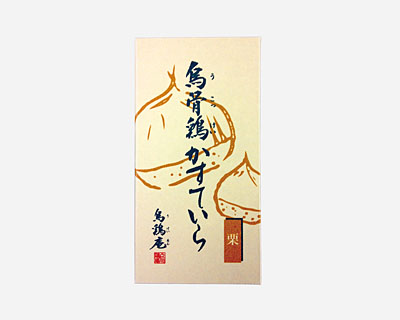 烏骨鶏かすていら
うこっけい
栗
烏鶏庵
うけいあん